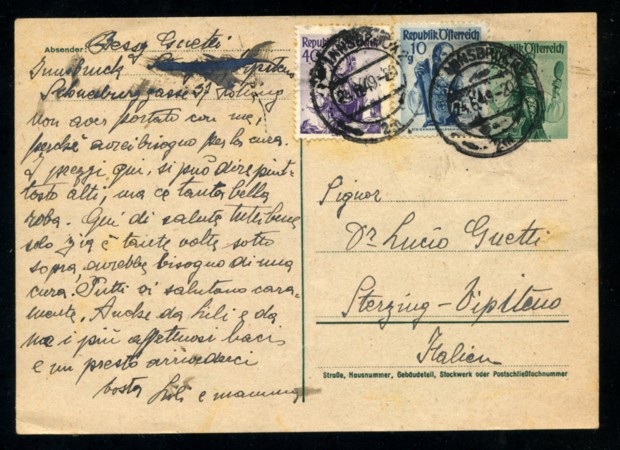 Absender: Bessy Guetti
Innsbruck
Schneeburggasse 31 Hötting
non aver portato con me,
perchè avrei bisogno per la cura.
I prezzi qui, si può dire piut-
tosto alti, ma c'è tanta bella
roba. Qui di salute tutti bene
solo zia è tante volte sotto
sopra, avrebbe bisogno di una
cura. Tutti vi salutano cara-
mente. Anche da Lili e da
me i più affettuosi baci
e un presto arrivederci
vostra Lili e mamma
Republik Österreich
40g
Republik Österreich
10
g
Republik Österreich
INNSBRUCK 2
INNSBRUCK 2
Signor
Dr Lucio Guetti
Sterzing - Vipiteno
Italien
Straße, Hausnummer, Gebäudeteil, Stockwerk oder Postschließfachnummer